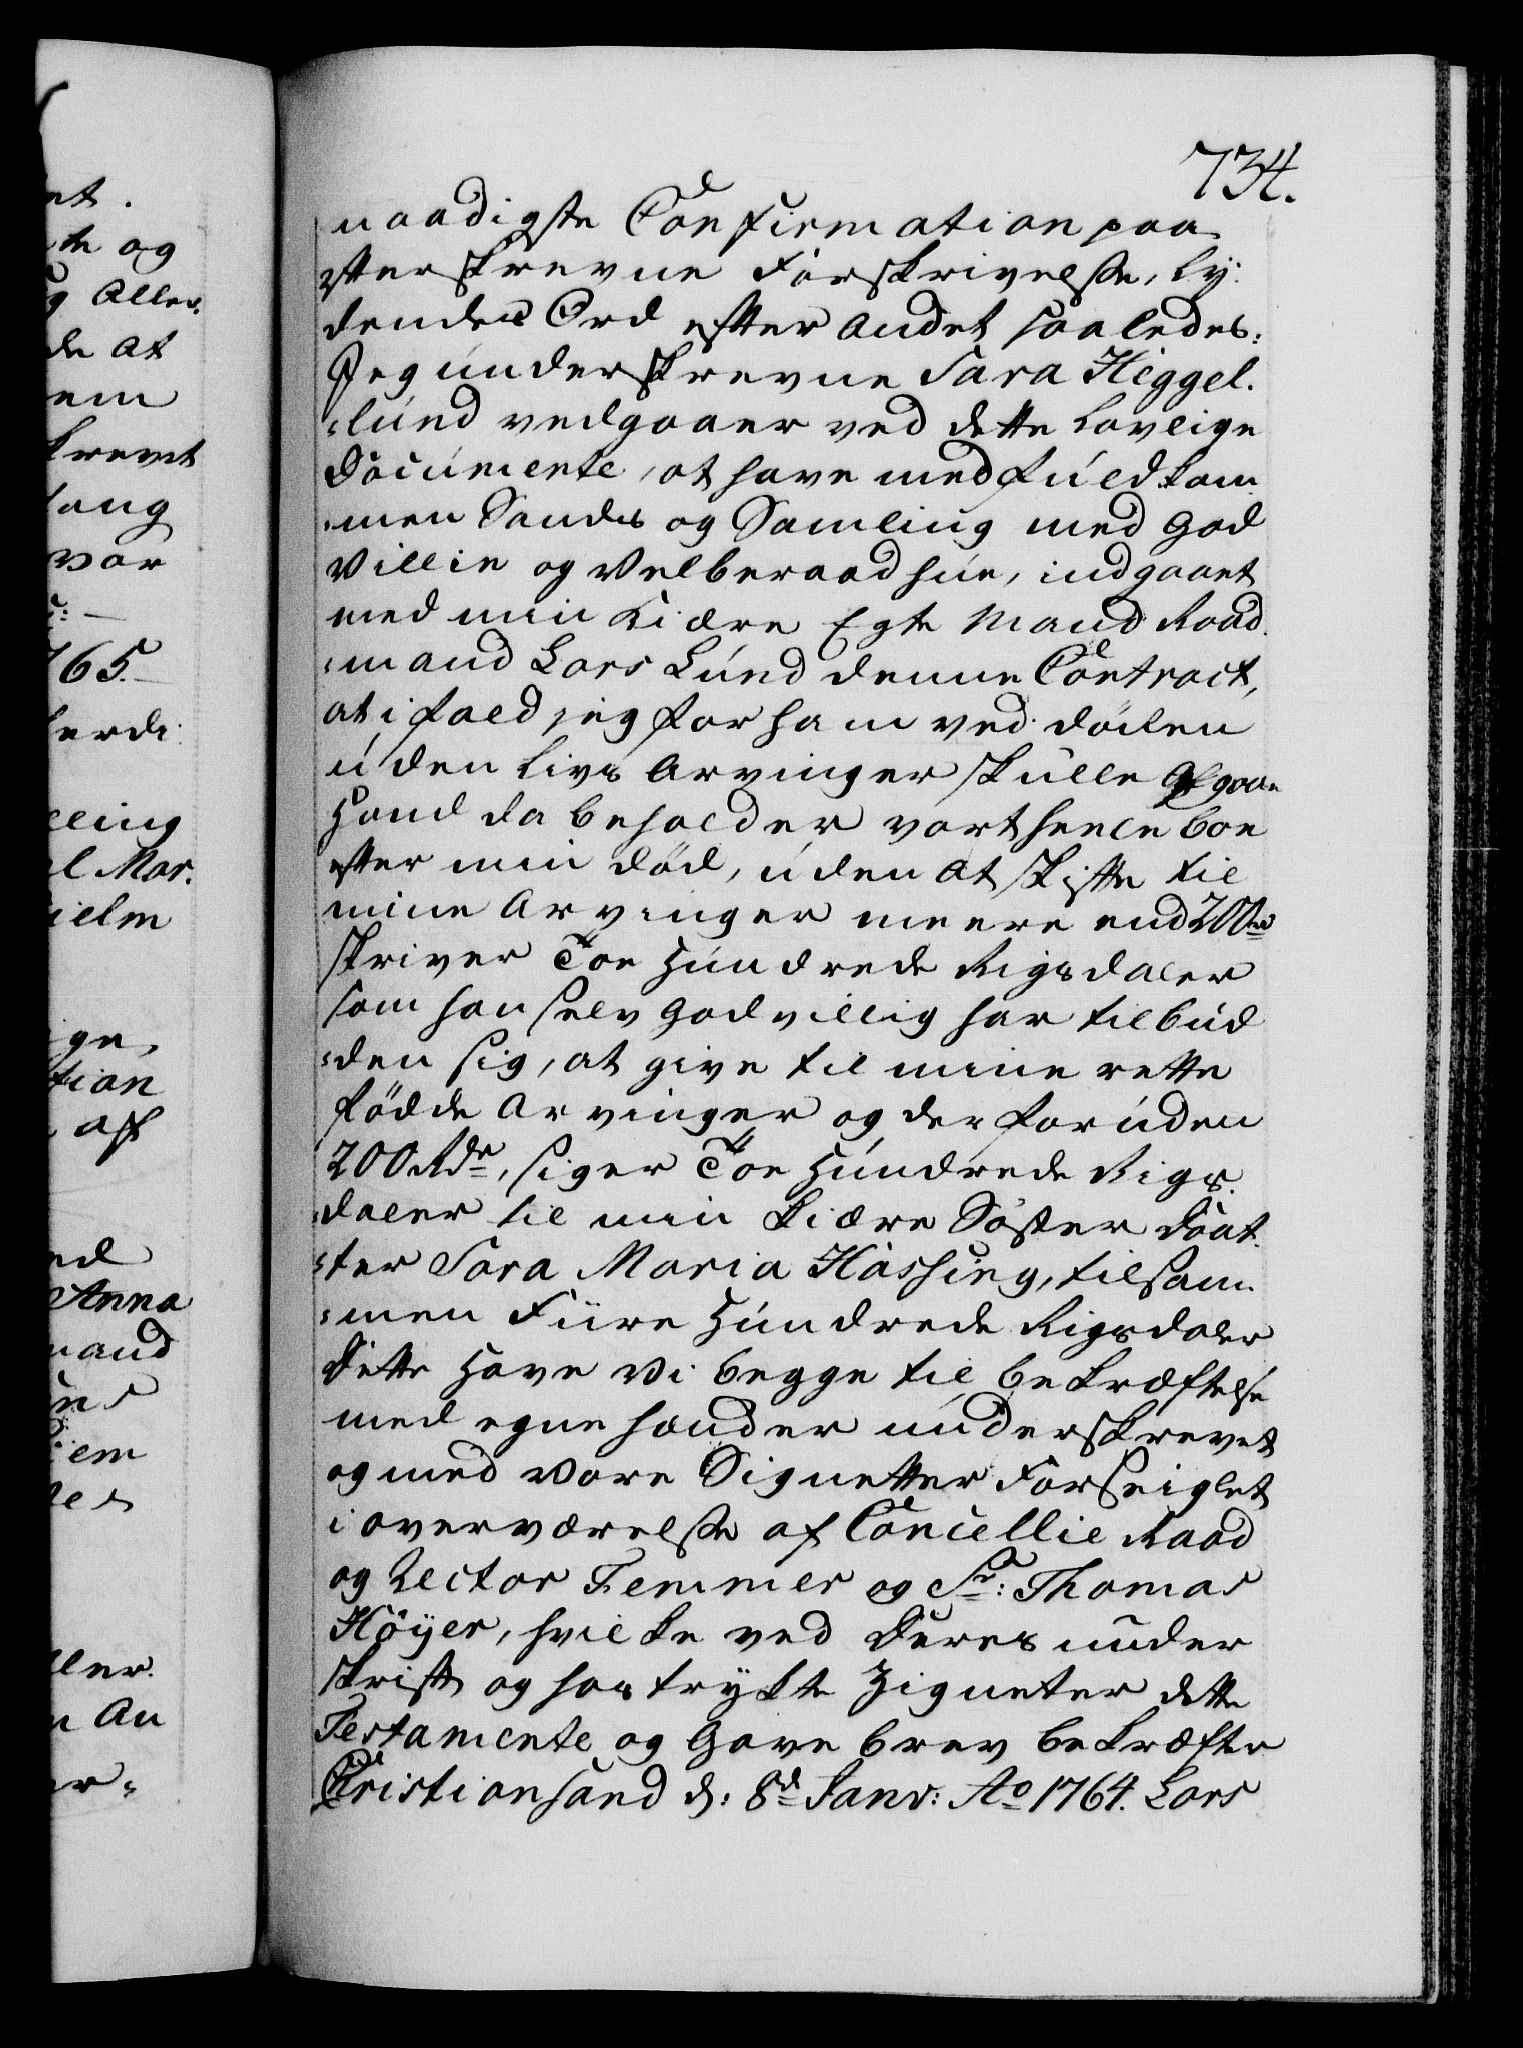 734.
naadigste Confirmation paa
efterskrevne Forskrivelse, ly-
dendes Ord efter Andet saaledes:
Jeg underskrevne Sara Heggel-
lund vedgaaer ved dette lovlige
Documente, at have med fuldkom
men Sands og Samling med god
Villie og Velberaad hue, indgaaet
med min kiære Egte Mand Raad-
mand Lars Lund denne Contract,
at i fald jeg for ham ved døden
uden Livs Arvinger skulle Afgaae
Hand da beholder vort heele boe
efter min død, uden at skifte til
mine Arvinger meere end 200 Rd
skriver Toe Hundrede Rigsdaler
som han selv godvillig har tilbud
den sig, at give til mine rette
fødde Arvinger og der foruden
200 Rdr, siger Toe Hundrede Rigs-
daler til min kiære Søster Daat-
ter Sara Maria Hassing, tilsam-
men Fiire Hundrede Rigsdaler
Dette Have Vi begge til bekræftelse
med egne hænder underskrevet
og med vore Signetter Forseiglet
i overværelse af Cancellie Raad
og Rector Femmer og Sr: Thomas
Höyer, hvilke ved Deres under
skrift og hostrykte Zigneter dette
Testamente og Gave brev bekræfter
Christiansand d: 8d Janv: Ao 1764. Lars
et.
te og
g Aller-
de at
em
krevet
lang
var
765.
ferdi
lling
l Mar.
ielm
ige,
tion
af
ed
Anna
mand
ens
iem
tes
ller
n An
er-